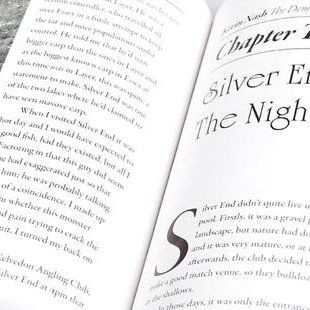 vermin controller, who travelled all
over Essex in a little van to keep
the rat and mice populations under
control. He told me that he'd seen
bigger carp than the ones in Layer and
as the biggest known carp in Essex at
this time was in Layer, that was quite a
statement to make. Silver End was one
of the two lakes where he'd claimed to
have seen massive carp.
When I visited Silver End it was
hot day and I would have expected to
good fish, had they existed, but all I
Factoring in that this guy did seem
he had exaggerated just so that
of a coincidence. I made up
he was probably talking
in whether this monster
and pain trying to crack the
it. I turned my back on
Kelvedon Angling Club,
Silver End at 4pm that
Kevin Nash The Demon
Chapter T
Silver En
The Nigh
Silver End didn't quite live
pool. Firstly, it was a gravel p
landscape, but nature had do
and it was very mature, or at l
afterwards, the club decided t
make a good match venue, so they bulldoz
in the shallows.
In those days, it was only the entranc